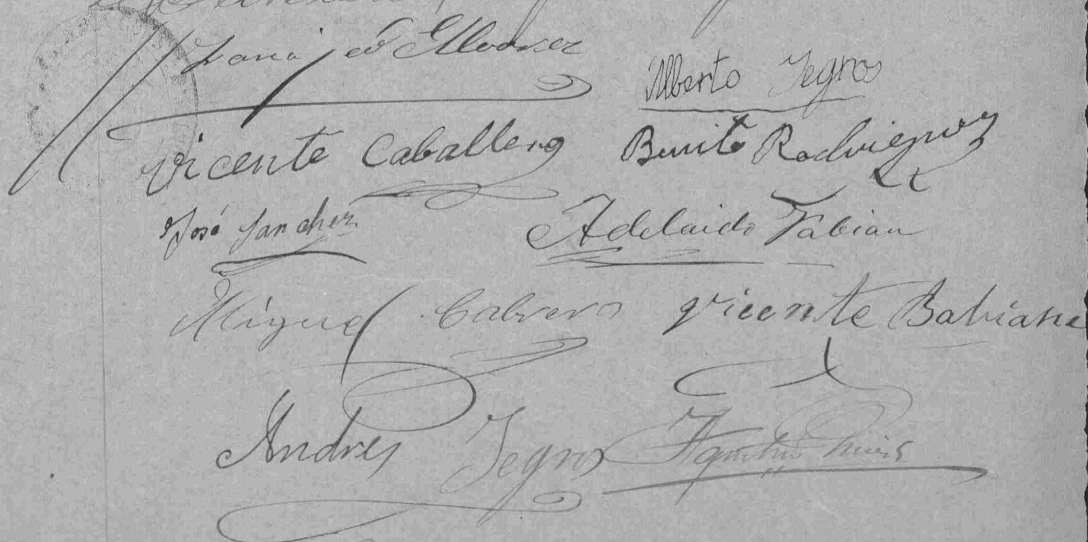 Alvarez
Alberto Yegros
Vicente Caballero Benito Rodrieguez
José Sanchez Adelaido Fabian
Miguel Cabrera Vicente Babiano
Andres Yegros Agustin